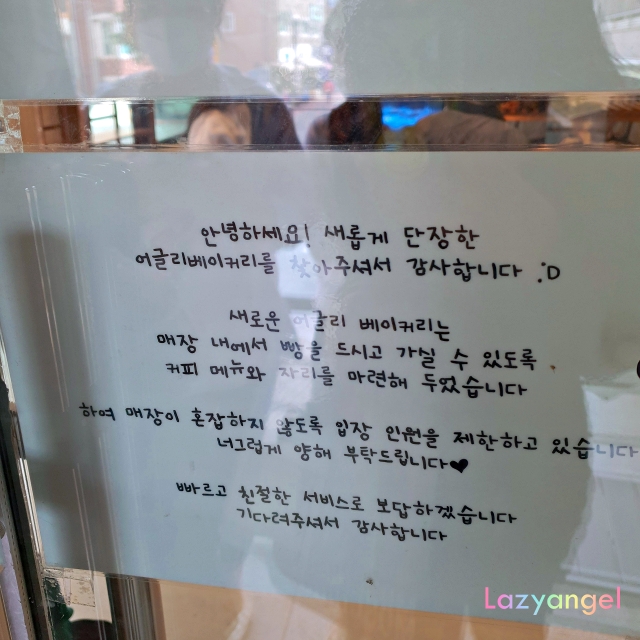 안녕하세요! 새롭게 단장한
어글리베이커리를 찾아주셔서 감사합니다 :D
새로운 어글리 베이커리는
매장 내에서 빵을 드시고 가실 수 있도록
커피 메뉴와 자리를 마련해 두었습니다
하여 매장이 혼잡하지 않도록 입장 인원을 제한하고 있습니다
너그럽게 양해 부탁드립니다♥
빠르고 친절한 서비스로 보답하겠습니다
기다려주셔서 감사합니다
Lazyangel